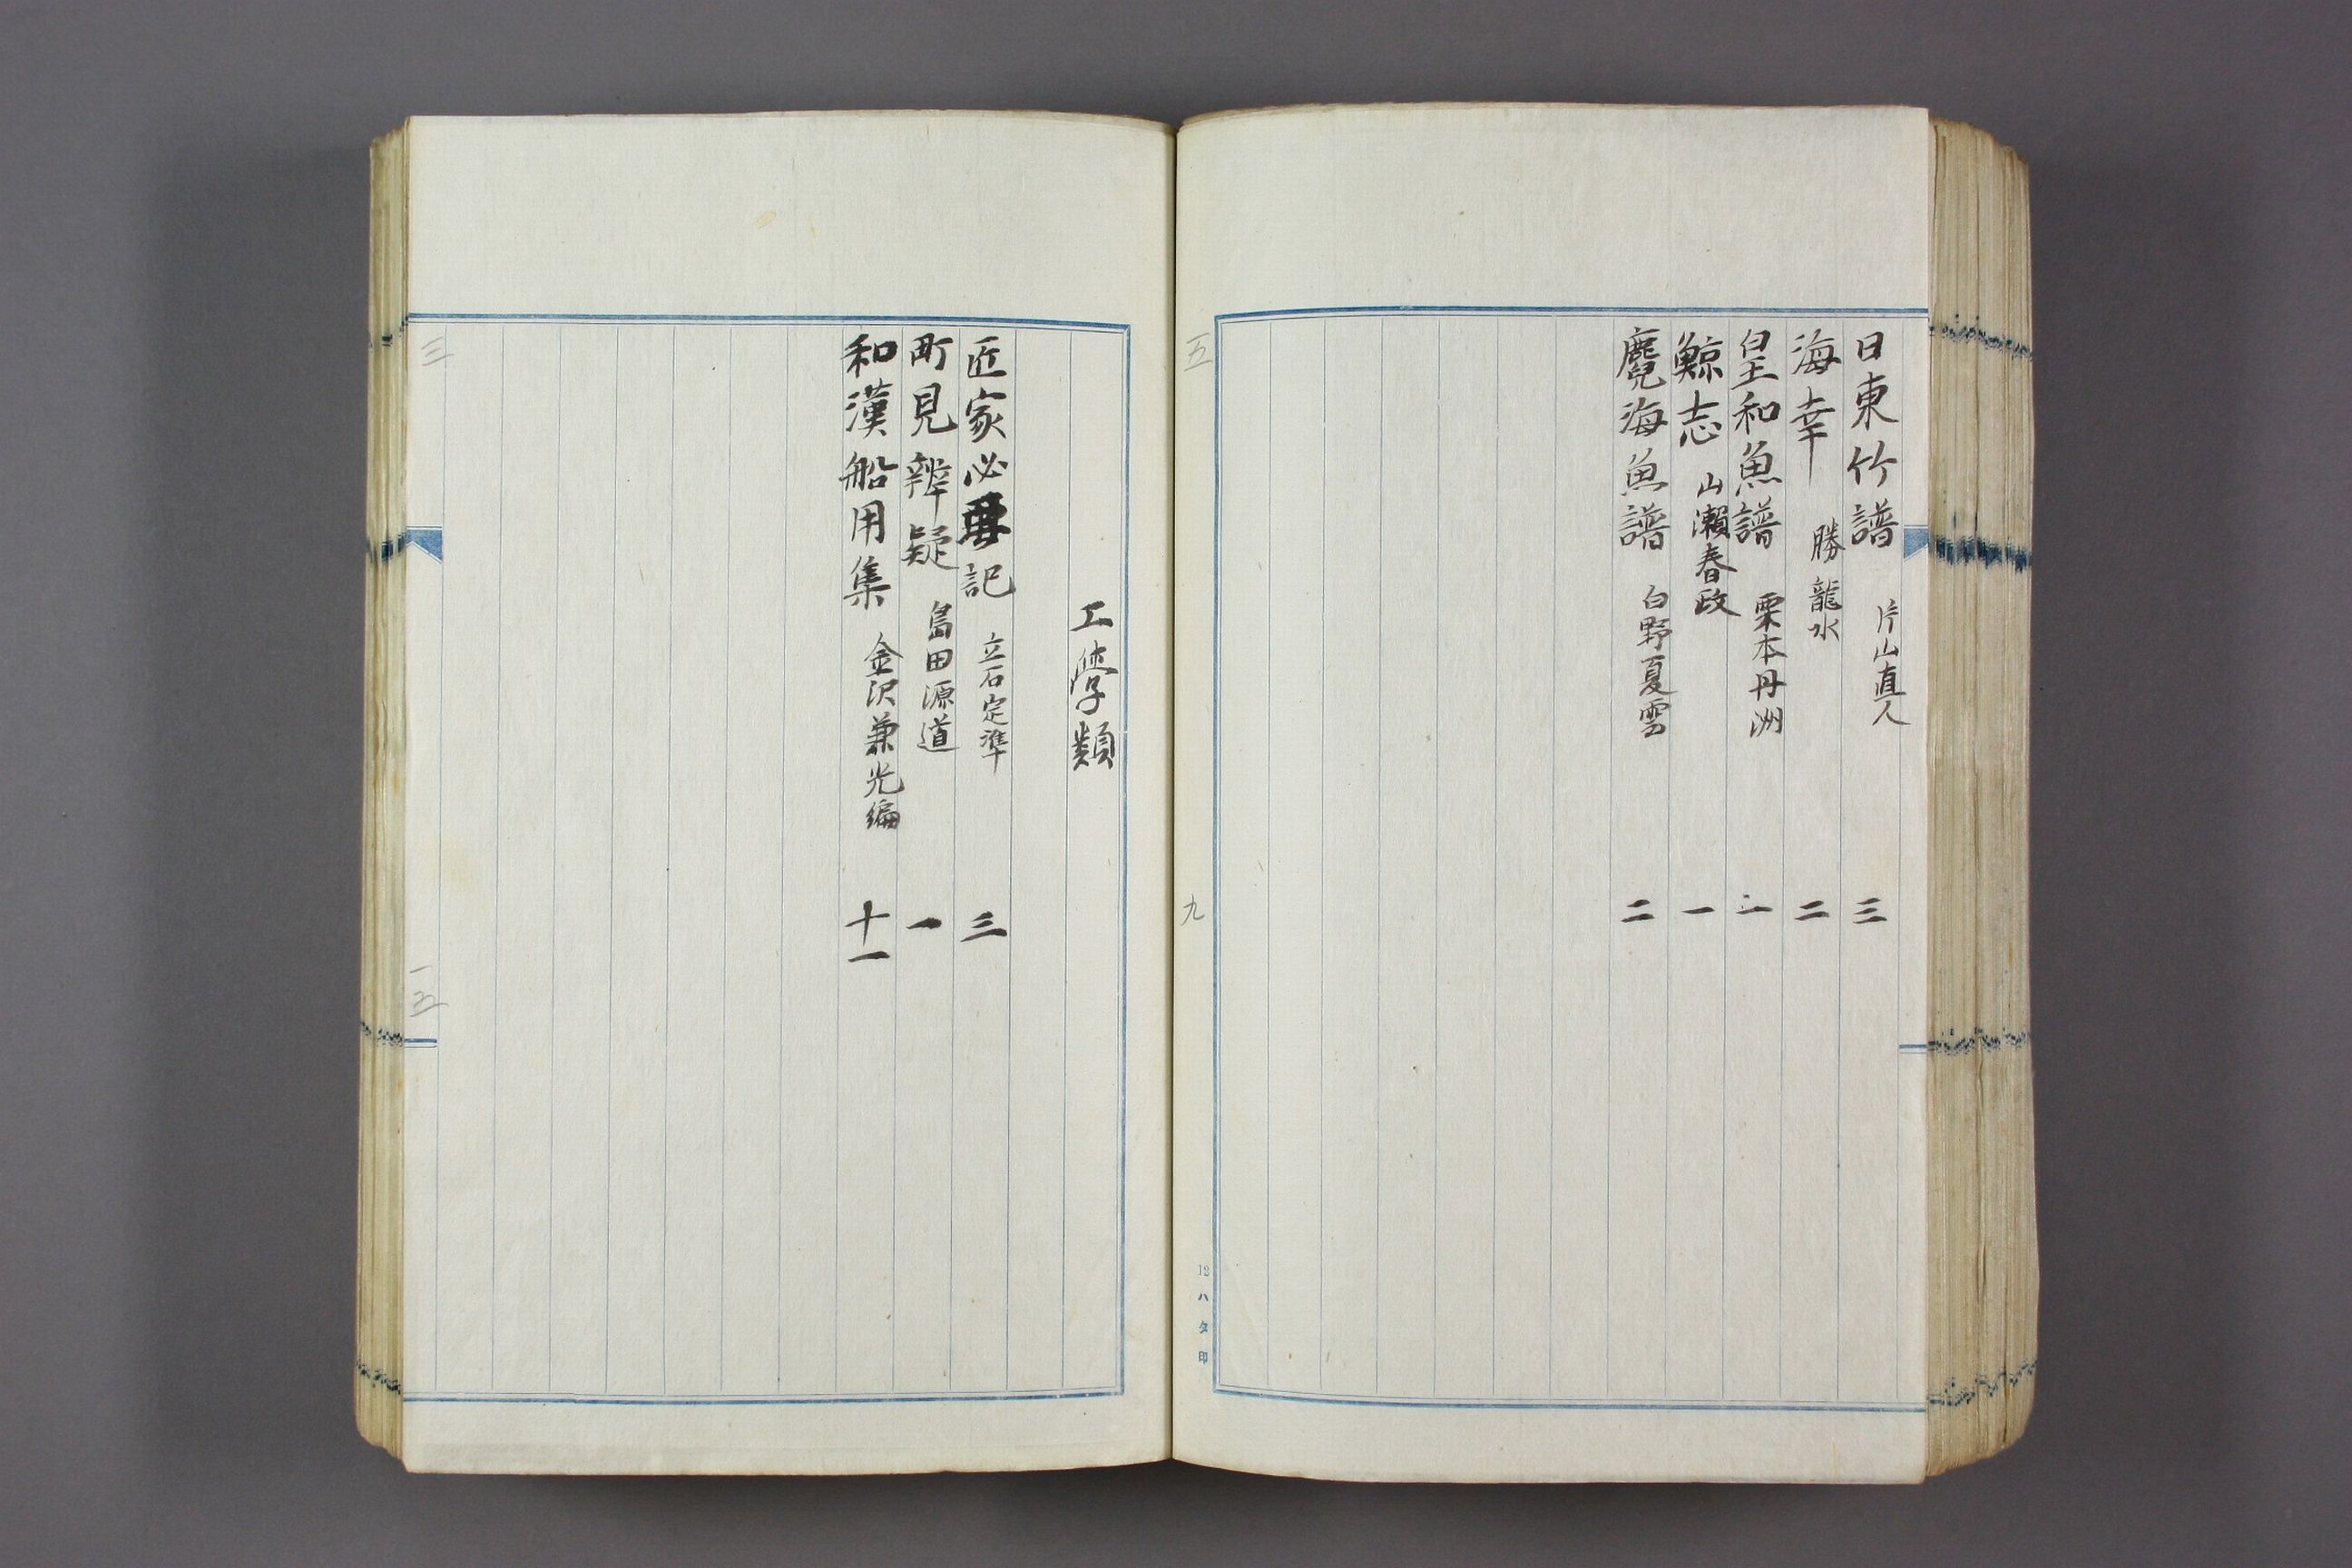 日東竹譜 片山直人 三
海幸 勝龍水 二
皇和魚譜 栗本丹洲 一
鯨志 山瀬春政 一
麑海魚譜 白野夏雲 二
五
九
12ハタ印
工学類
匠家必要記 立石定準 三
町見辨疑 島田源道 一
和漢船用集 金沢兼光編 十一
三
一五